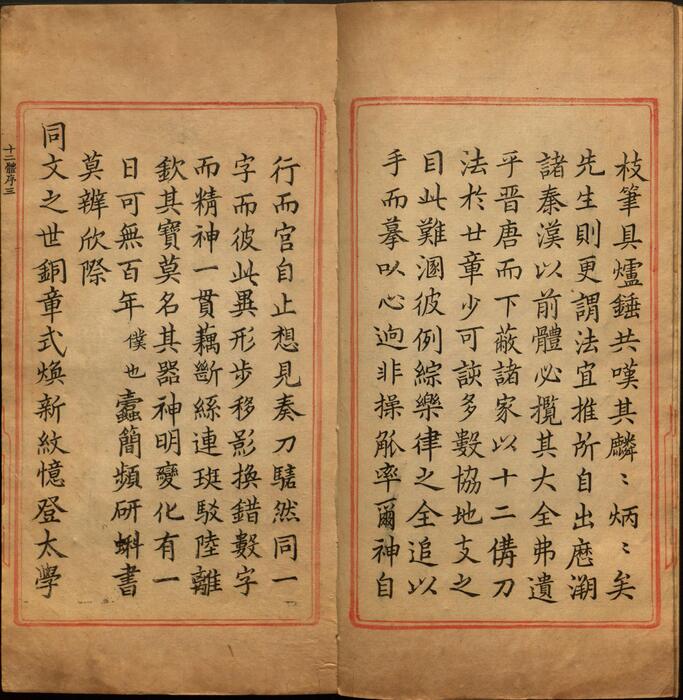 枝筆具爐錘共嘆其麟〻炳〻矣
先生則更謂法宜推所自出㦄溯
諸秦漢以前體必攬其大全弗遺
乎晋唐而下蔽諸家以十二備刀
法於廿章少可詼多數協地支之
目此難溷彼例綜樂律之全追以
手而摹以心逈非操觚率爾神自
行而官自止想見奏刀騞然同一
字而彼此異形步移影換錯數字
而精神一貫藕斷絲連斑駁陸離
欽其寶莫名其器神明變化有一
日可無百年僕也蠹簡頻研蝌書
莫辨欣際
同文之世銅章式煥新紋憶登太學
十二體序三